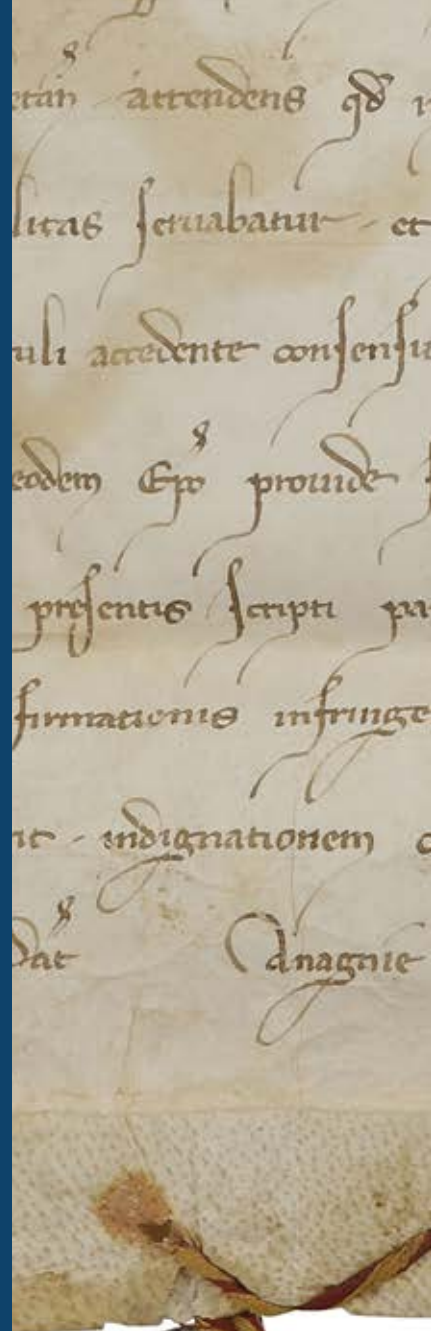 etan attendens qd
litas servabatur et
uli accedente consensu
eodem Epo provide
presentis scripti pa
firmationis infringe
it indignationem
Dat Anagnie